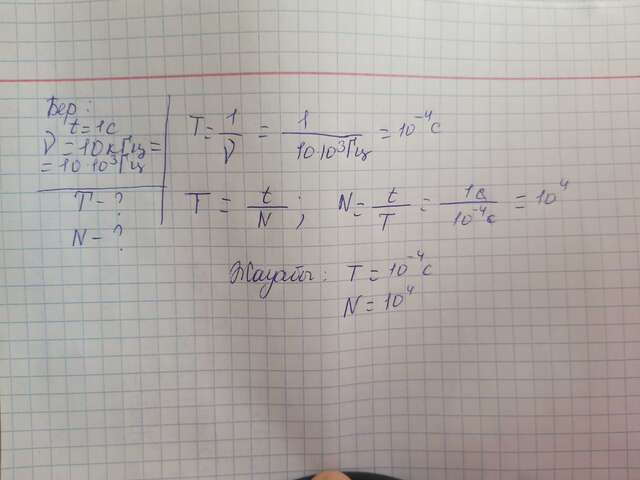 Бер:
t=1c
ν=10кГц=
=10·10³Гц
T-?
N-?
T=1/ν = 1/10·10³Гц = 10⁻⁴c
T = t/N; N= t/T = 1c/10⁻⁴c = 10⁴
Жауабы: T=10⁻⁴c
N=10⁴